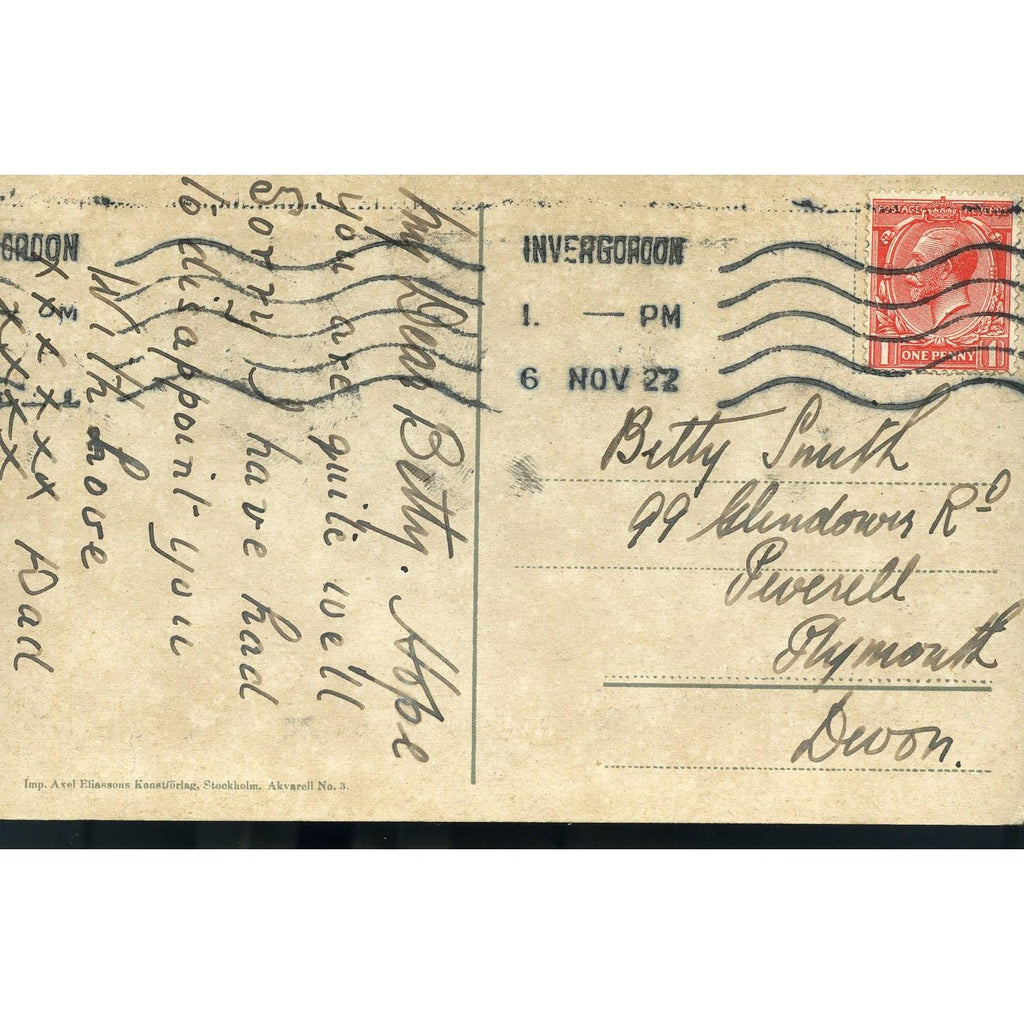 My Dear Betty. Hope
you are quite well
Sorry I have had
to disappoint you
With love
x x x x x Dad
x x x x
GORDON
PM
INVERGORDON
1. — PM
6 NOV 22
POSTAGE REVENUE
1 ONE PENNY 1
Betty Smith
99 Glendower Rd
Peverell
Plymouth
Devon.
Imp. Axel Eliassons Konstförlag, Stockholm. Akvarell No. 3.